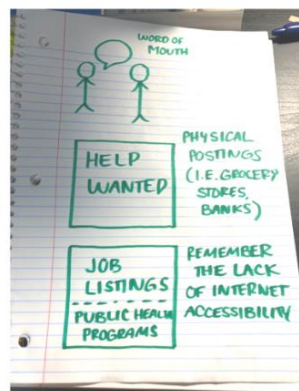 WORD OF
MOUTH
HELP
WANTED
PHYSICAL
POSTINGS
(I.E. GROCERY
STORES,
BANKS)
JOB
LISTINGS
PUBLIC HEALTH
PROGRAMS
REMEMBER
THE LACK
OF INTERNET
ACCESSIBILITY